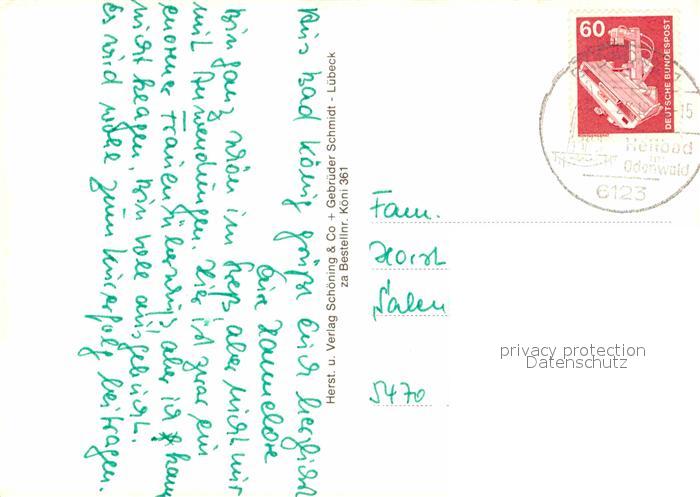 Aus Bad König grüßt Euch herzlich
Eure Hannelore
Bin ganz schön im Streß, aber nicht nur
mit Anwendungen. Hier ist zwar ein
enormer Frauenüberschuß, aber ich kann
nicht klagen, bin voll ausgebucht.
Es wird wohl zum Kurerfolg beitragen.
Herst. u. Verlag Schöning & Co + Gebrüder Schmidt - Lübeck
za Bestellnr. Köni 361
60
DEUTSCHE BUNDESPOST
-15
Heilbad
im
Odenwald
6123
Fam.
Horst
5470
privacy protection
Datenschutz